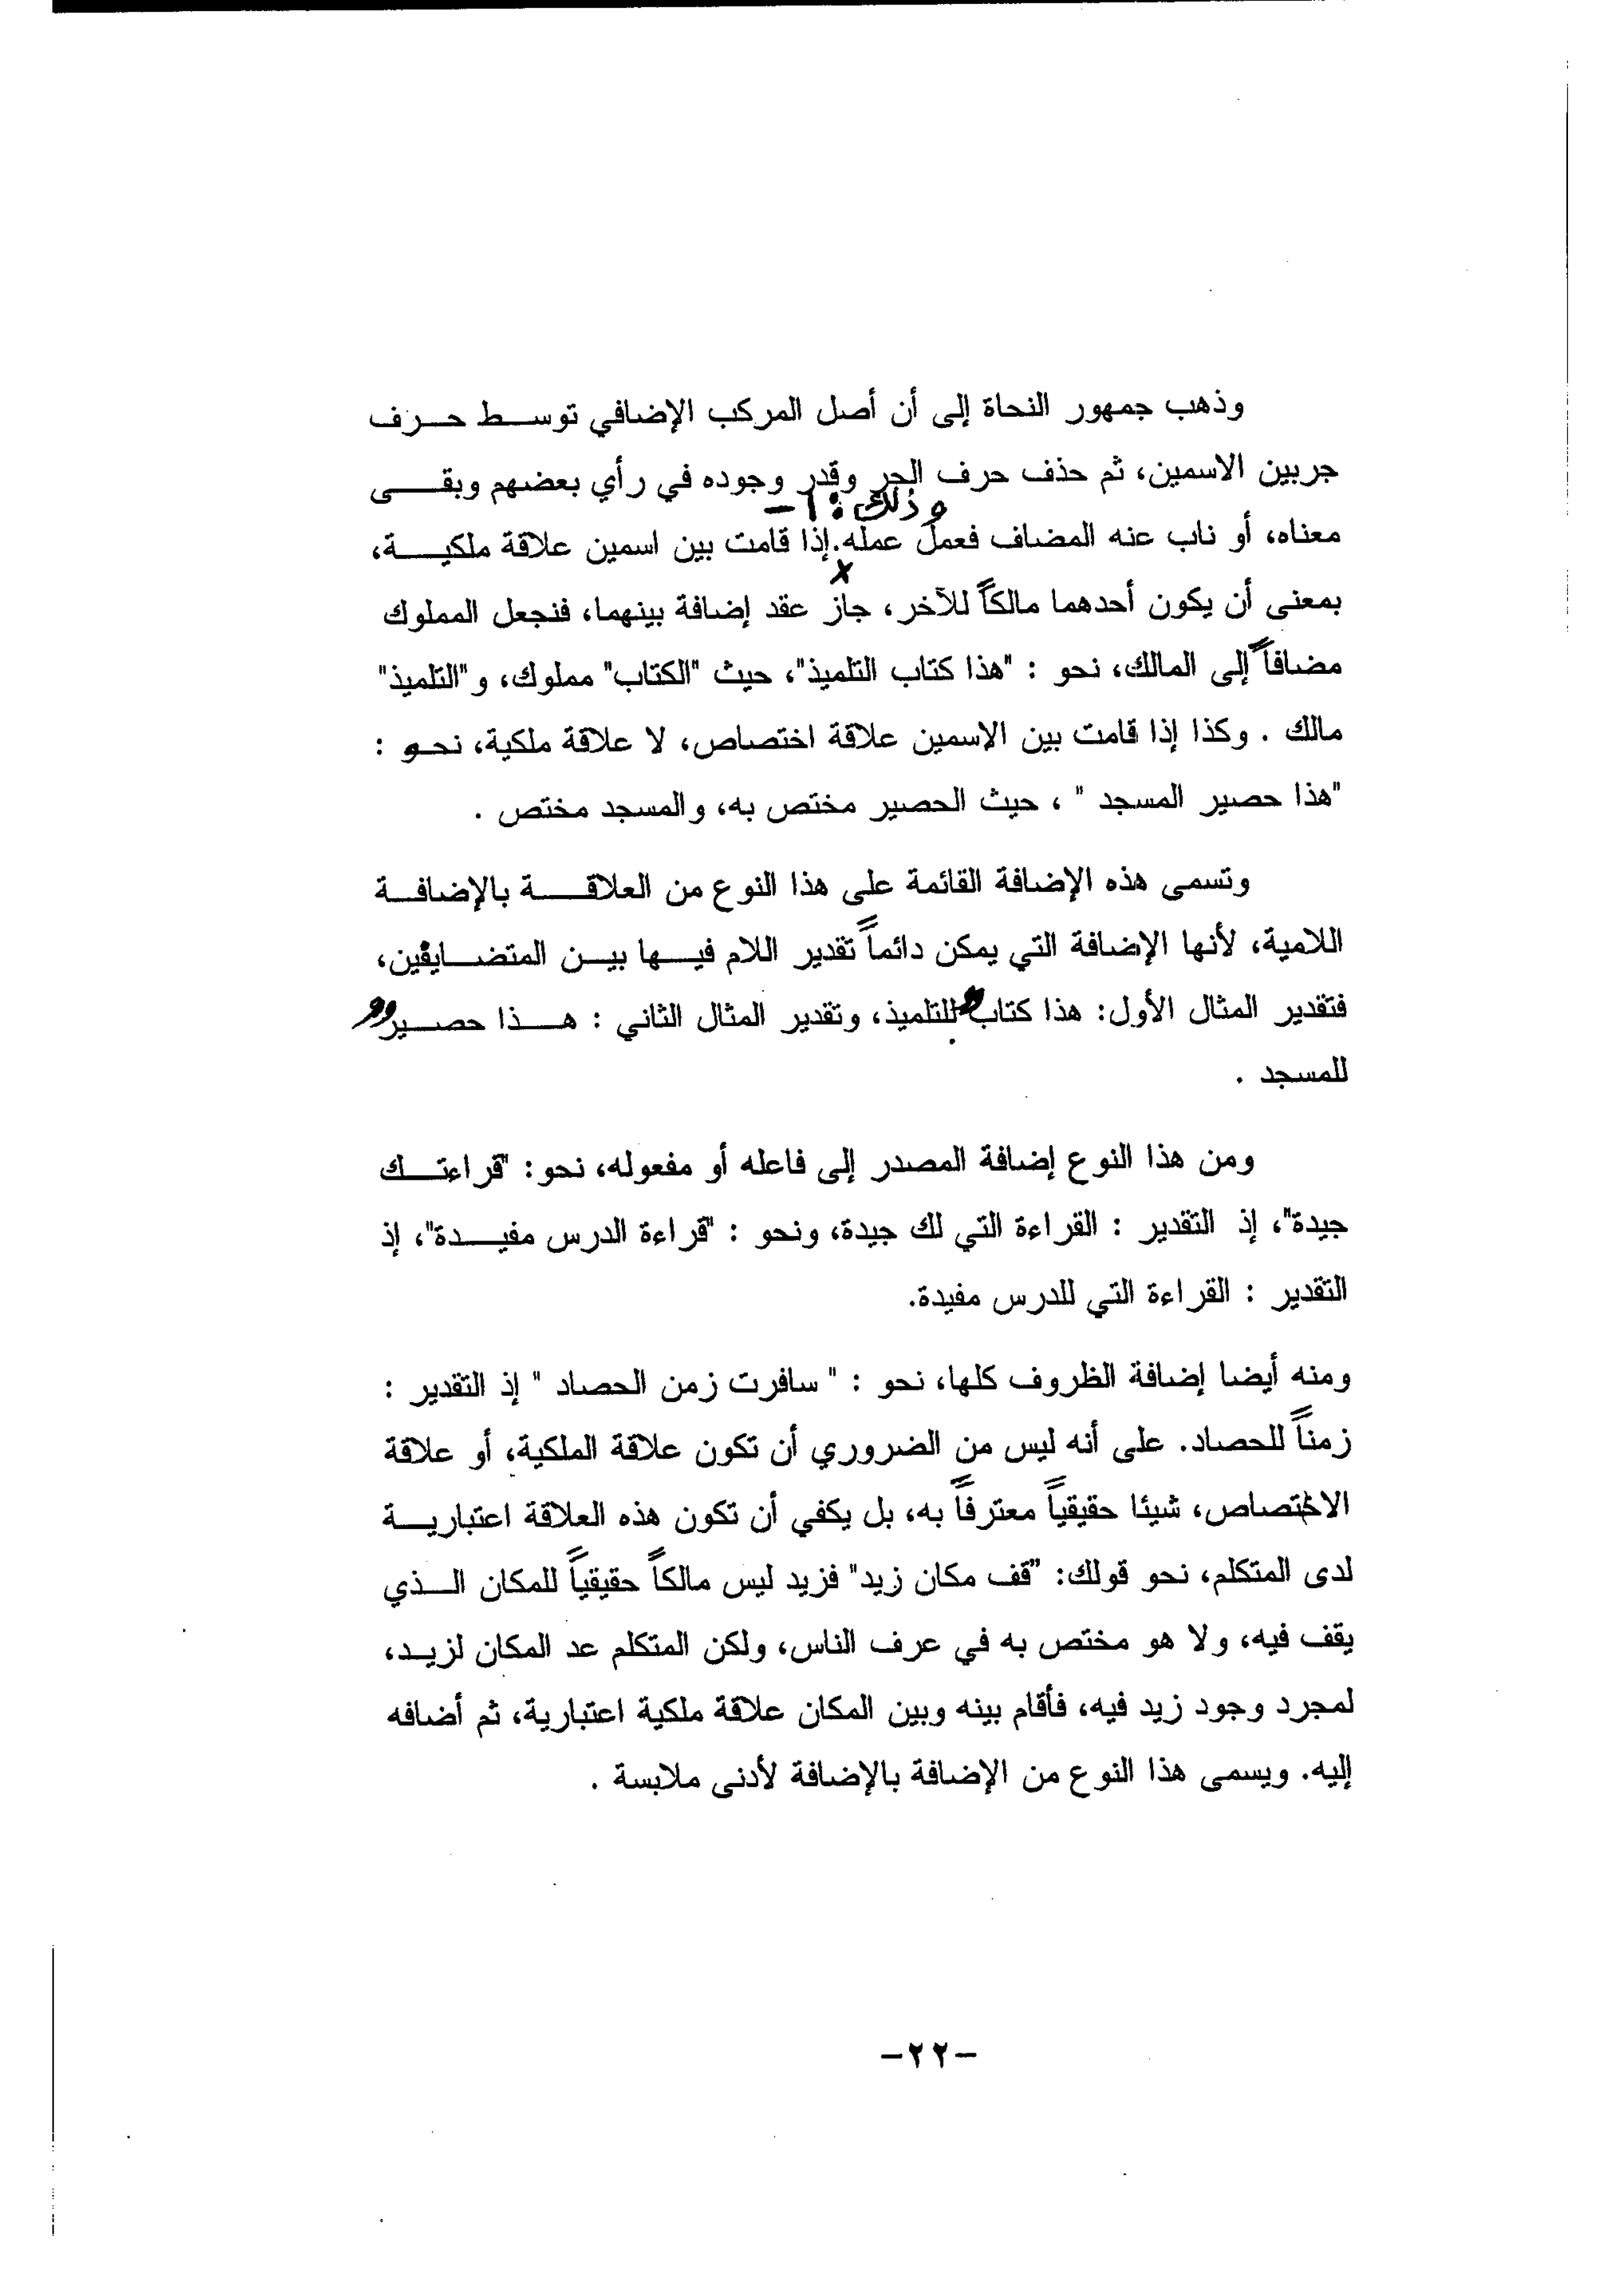 وذهب جمهور النحاة إلى أن أصل المركب الإضافي توسط حرف
جربين الاسمين، ثم حذف حرف الجر وقدر وجوده في رأي بعضهم وبقى
وذلك: ١-
معناه، أو ناب عنه المضاف فعمل عمله. إذا قامت بين اسمين علاقة ملكية،
بمعنى أن يكون أحدهما مالكاً للآخر، جاز عقد إضافة بينهما، فنجعل المملوك
مضافاً إلى المالك، نحو : "هذا كتاب التلميذ"، حيث "الكتاب" مملوك، و"التلميذ"
مالك . وكذا إذا قامت بين الإسمين علاقة اختصاص، لا علاقة ملكية، نحو :
"هذا حصير المسجد " ، حيث الحصير مختص به، والمسجد مختص .
وتسمى هذه الإضافة القائمة على هذا النوع من العلاقة بالإضافة
اللامية، لأنها الإضافة التي يمكن دائماً تقدير اللام فيها بين المتضايفين،
فتقدير المثال الأول: هذا كتابٌ للتلميذ، وتقدير المثال الثاني : هذا حصيرٌ
للمسجد .
ومن هذا النوع إضافة المصدر إلى فاعله أو مفعوله، نحو: "قراءتك
جيدة"، إذ التقدير : القراءة التي لك جيدة، ونحو : "قراءة الدرس مفيدة"، إذ
التقدير : القراءة التي للدرس مفيدة.
ومنه أيضا إضافة الظروف كلها، نحو : " سافرت زمن الحصاد " إذ التقدير :
زمناً للحصاد. على أنه ليس من الضروري أن تكون علاقة الملكية، أو علاقة
الاختصاص، شيئا حقيقياً معترفاً به، بل يكفي أن تكون هذه العلاقة اعتبارية
لدى المتكلم، نحو قولك: "قف مكان زيد" فزيد ليس مالكاً حقيقياً للمكان الذي
يقف فيه، ولا هو مختص به في عرف الناس، ولكن المتكلم عد المكان لزيد،
لمجرد وجود زيد فيه، فأقام بينه وبين المكان علاقة ملكية اعتبارية، ثم أضافه
إليه. ويسمى هذا النوع من الإضافة بالإضافة لأدنى ملابسة .
-٢٢-